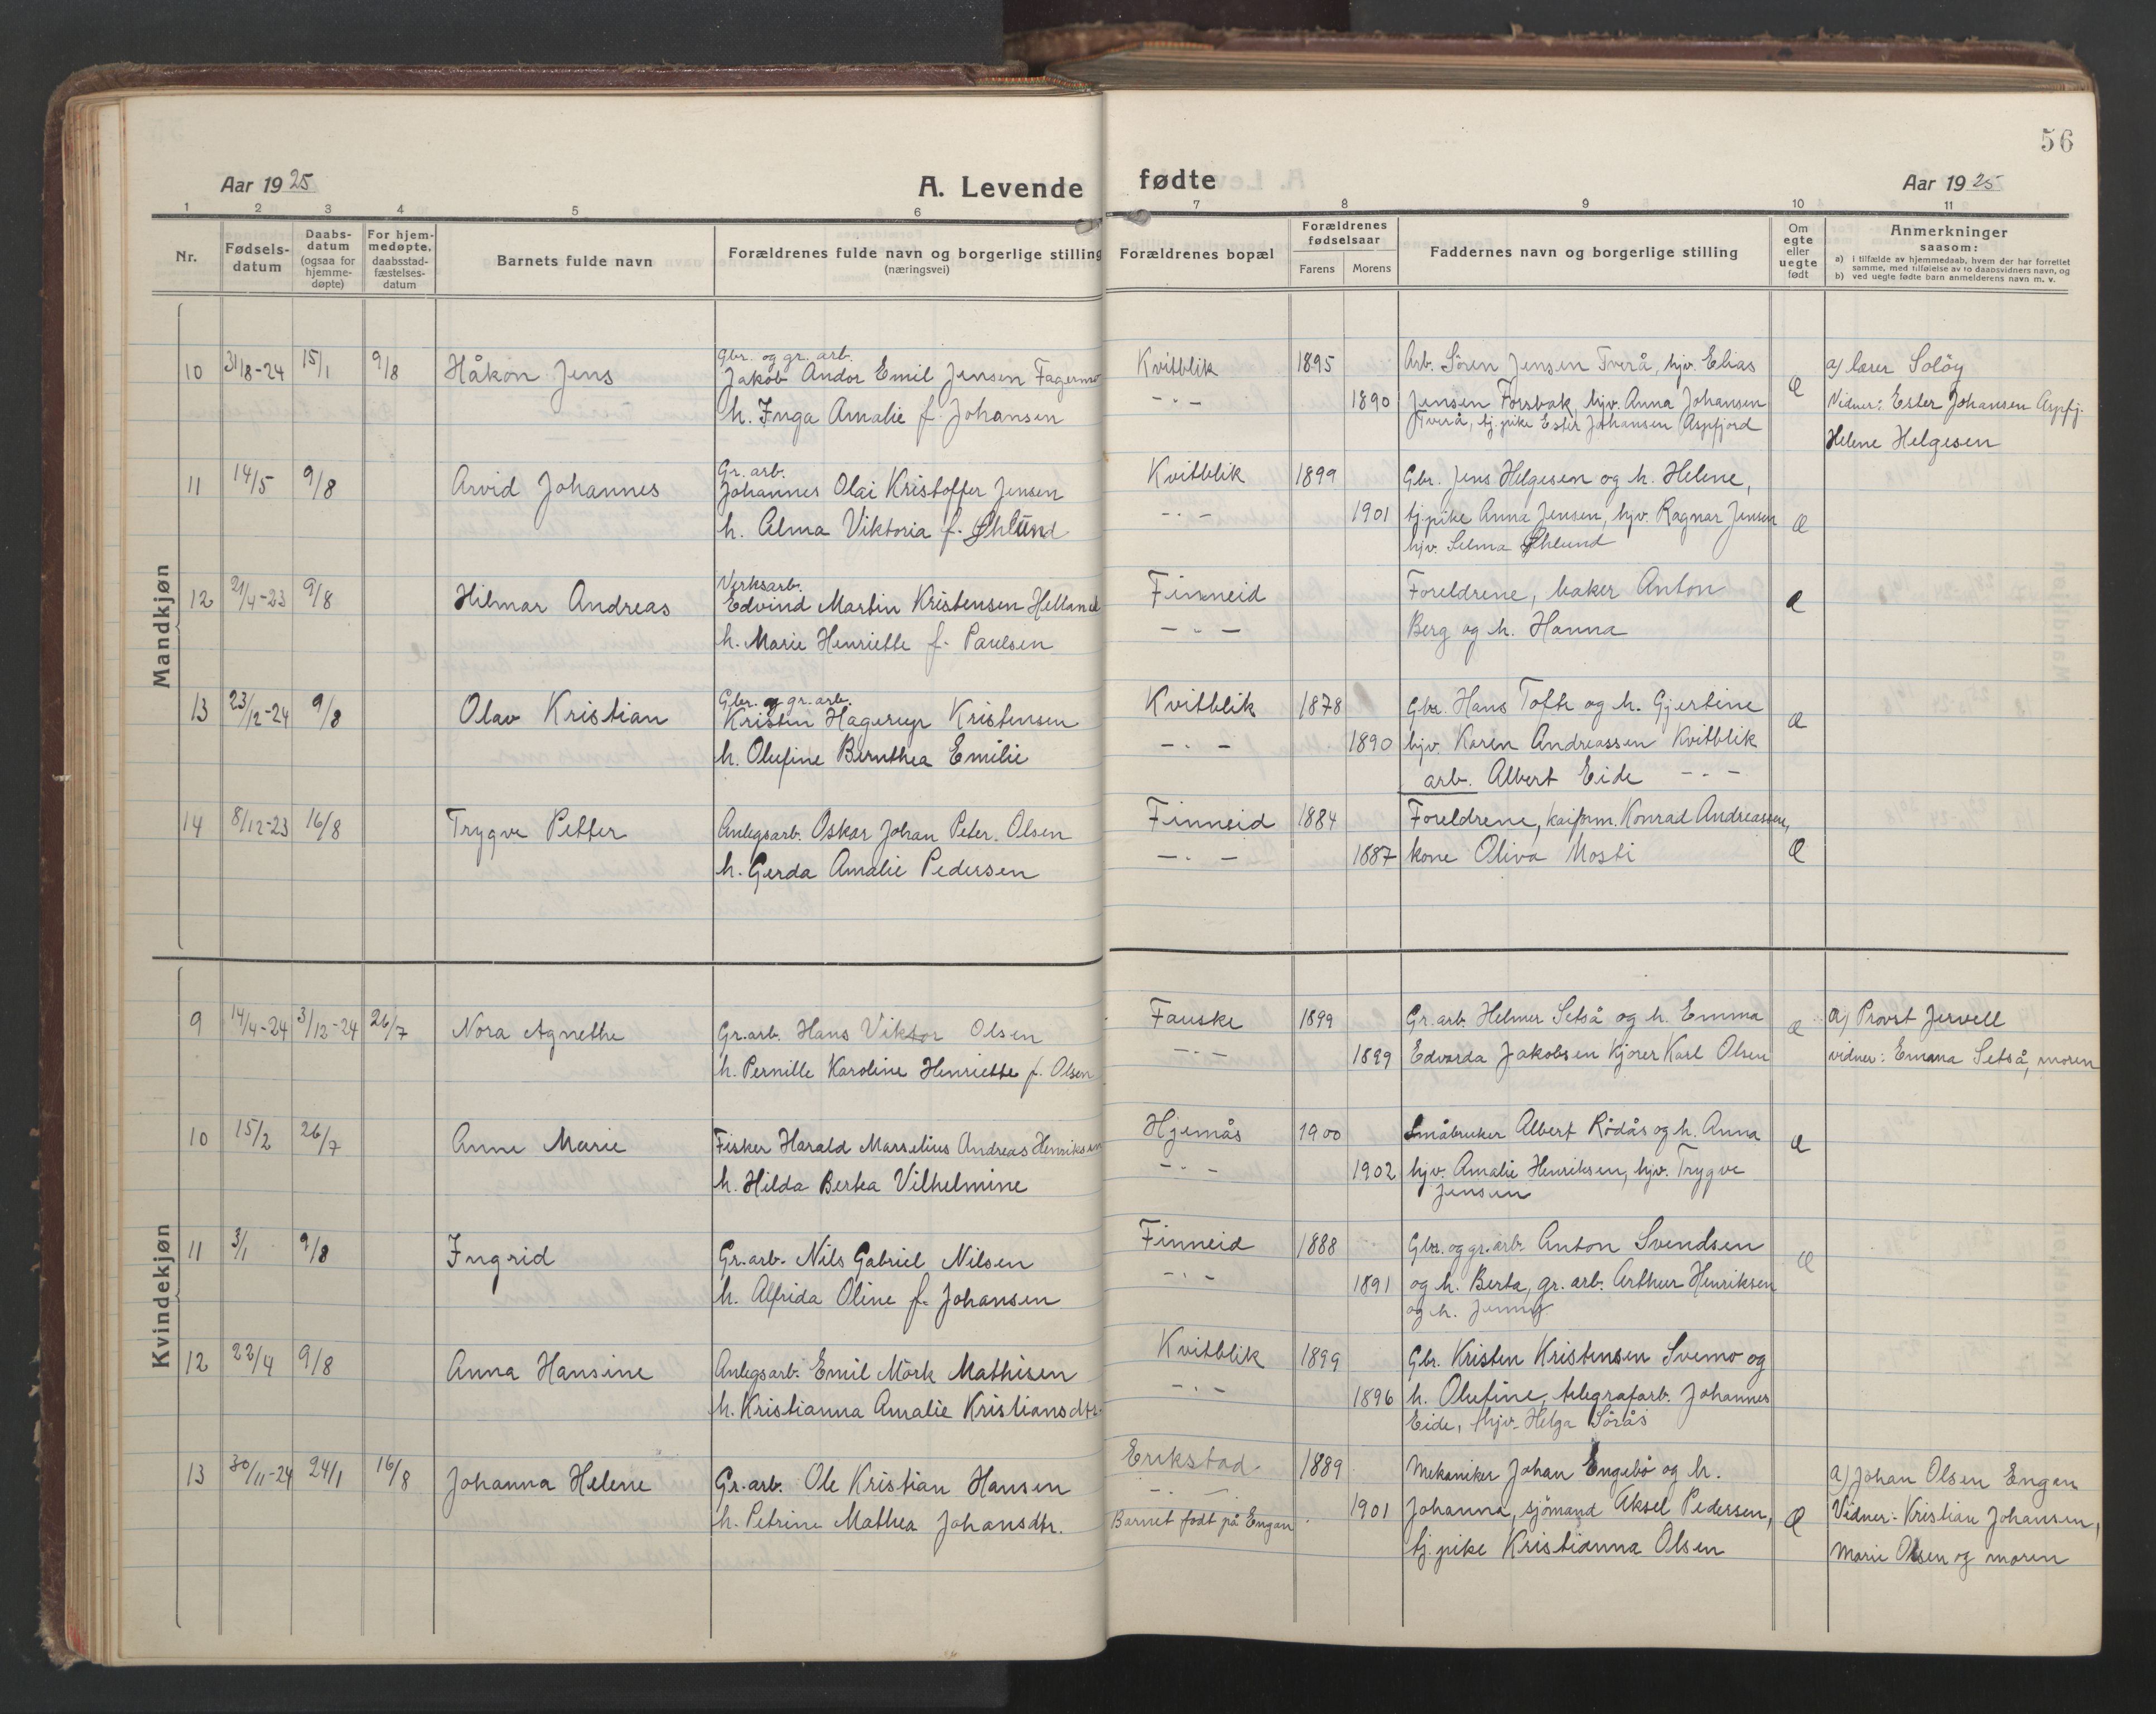 56
Aar 1925
A. Levende
fødte
Aar 1925
1 2 3 4 5 6 7 8 9 10 11
Nr.
Fødsels-
datum
Daabs-
datum
(ogsaa for
hjemme-
døpte)
For hjem-
medøpte.
daabsstad-
fæstelses-
datum
Barnets fulde navn
Forældrenes fulde navn og borgerlige stilling
(næringsvei)
Forældrenes bopæl
Forældrenes
fødselsaar
Farens Morens
Faddernes navn og borgerlige stilling
Om
egte
eller
uegte
født
Anmerkninger
saasom:
a) i tilfælde av hjemmedaab, hvem der har forrettet
samme, med tilføielse av to daabsvidners navn, og
b) ved uegte fødte barn anmelderens navn m. v.
Mandkjøn
10 31/8-24 15/1 9/8 Håkon Jens
Gbr. og gr. arb.
Jakob Andor Emil Jensen Fagermo
h. Inga Amalie f. Johansen
Kvitblik 1895
-"- 1890
Arb. Sören Jensen Tverå, hjv. Elias
Jensen Forsbak, hjv. Anna Johansen
Tverå, tj.pike Ester Johansen Aspfjord
Æ
a) lærer Solöy
Vidner: Ester Johansen Aspfj.
Helene Helgesen
11 14/5 9/8 Arvid Johannes
Gr. arb.
Johannes Olai Kristoffer Jensen
h. Alma Viktoria f. Ehlund
Kvitblik 1899
-"- 1901
Gbr. Jens Helgesen og h. Helene,
tj.pike Anna Jensen, hjv. Ragnar Jensen
hjv. Selma Ehlund
Æ
12 21/4-23 9/8 Hilmar Andreas
Verksarb.
Edvind Martin Kristensen Helland
h. Marie Henriette f. Paulsen
Finneid
-"-
Foreldrene, baker Anton
Berg og h. Hanna
Æ
13 23/12-24 9/8 Olav Kristian
Gbr. og gr. arb.
Kristin Hagerup Kristensen
h. Olufine Bernthea Emilie
Kvitblik 1878
-"- 1890
Gbr. Hans Tofte og h. Gjertine
hjv. Karen Andreassen Kvitblik
arb. Albert Eide -"-
Æ
14 8/12-23 16/8 Trygve Petter
Anlegsarb. Oskar Johan Peter Olsen
h. Gerda Amalie Pedersen
Finneid 1884
-"- 1887
Foreldrene, kaiform. Konrad Andreassen,
kone Oliva Mosti
Æ
Kvindekjøn
9 14/4-24 3/12-24 26/7 Nora Agnethe
Gr.arb. Hans Viktor Olsen
h. Pernille Karoline Henriette f. Olsen
Fauske 1899
-"- 1899
Gr.arb. Helmer Setså og h. Emma
Edvarda Jakobsen Kjörer Karl Olsen
Æ
a) Provst Jervell
vidner: Emma Setså, moren
10 15/2 26/7 Anne Marie
Fisker Harald Marselius Andreas Henriksen
h. Hilda Berta Vilhelmine
Hjemås 1900
-"- 1902
Småbruker Albert Rödås og h. Anna
hjv. Amalie Henriksen, hjv. Trygve
Jensen
Æ
11 3/1 9/8 Ingrid
Gr.arb. Nils Gabriel Nilsen
h. Alfrida Oline f. Johansen
Finneid 1888
-"- 1891
Gbr. og gr.arb. Anton Svendsen
og h. Berta, gr. arb. Arthur Henriksen
og h. Jenny
Æ
12 22/4 9/8 Anna Hansine
Anlegsarb. Emil Mörk Mathisen
h. Kristianna Amalie Kristiansdtr.
Kvitblik 1899
-"- 1896
Gbr. Kristen Kristensen Svemo og
h. Olufine, telegrafarb. Johannes
Eide, hjv. Helga Sörås
13 30/11-24 24/1 16/8 Johanna Helene
Gr.arb. Ole Kristian Hansen
h. Petrine Mathea Johansdtr.
Erikstad 1889
-"- 1901
Barnet födt på Engan
Mekaniker Johan Engebö og h.
Johanna, sjömand Aksel Pedersen,
tj.pike Kristianna Olsen
Æ
a) Johan Olsen Engan
Vidner: Kristian Johansen,
Marie Olsen og moren